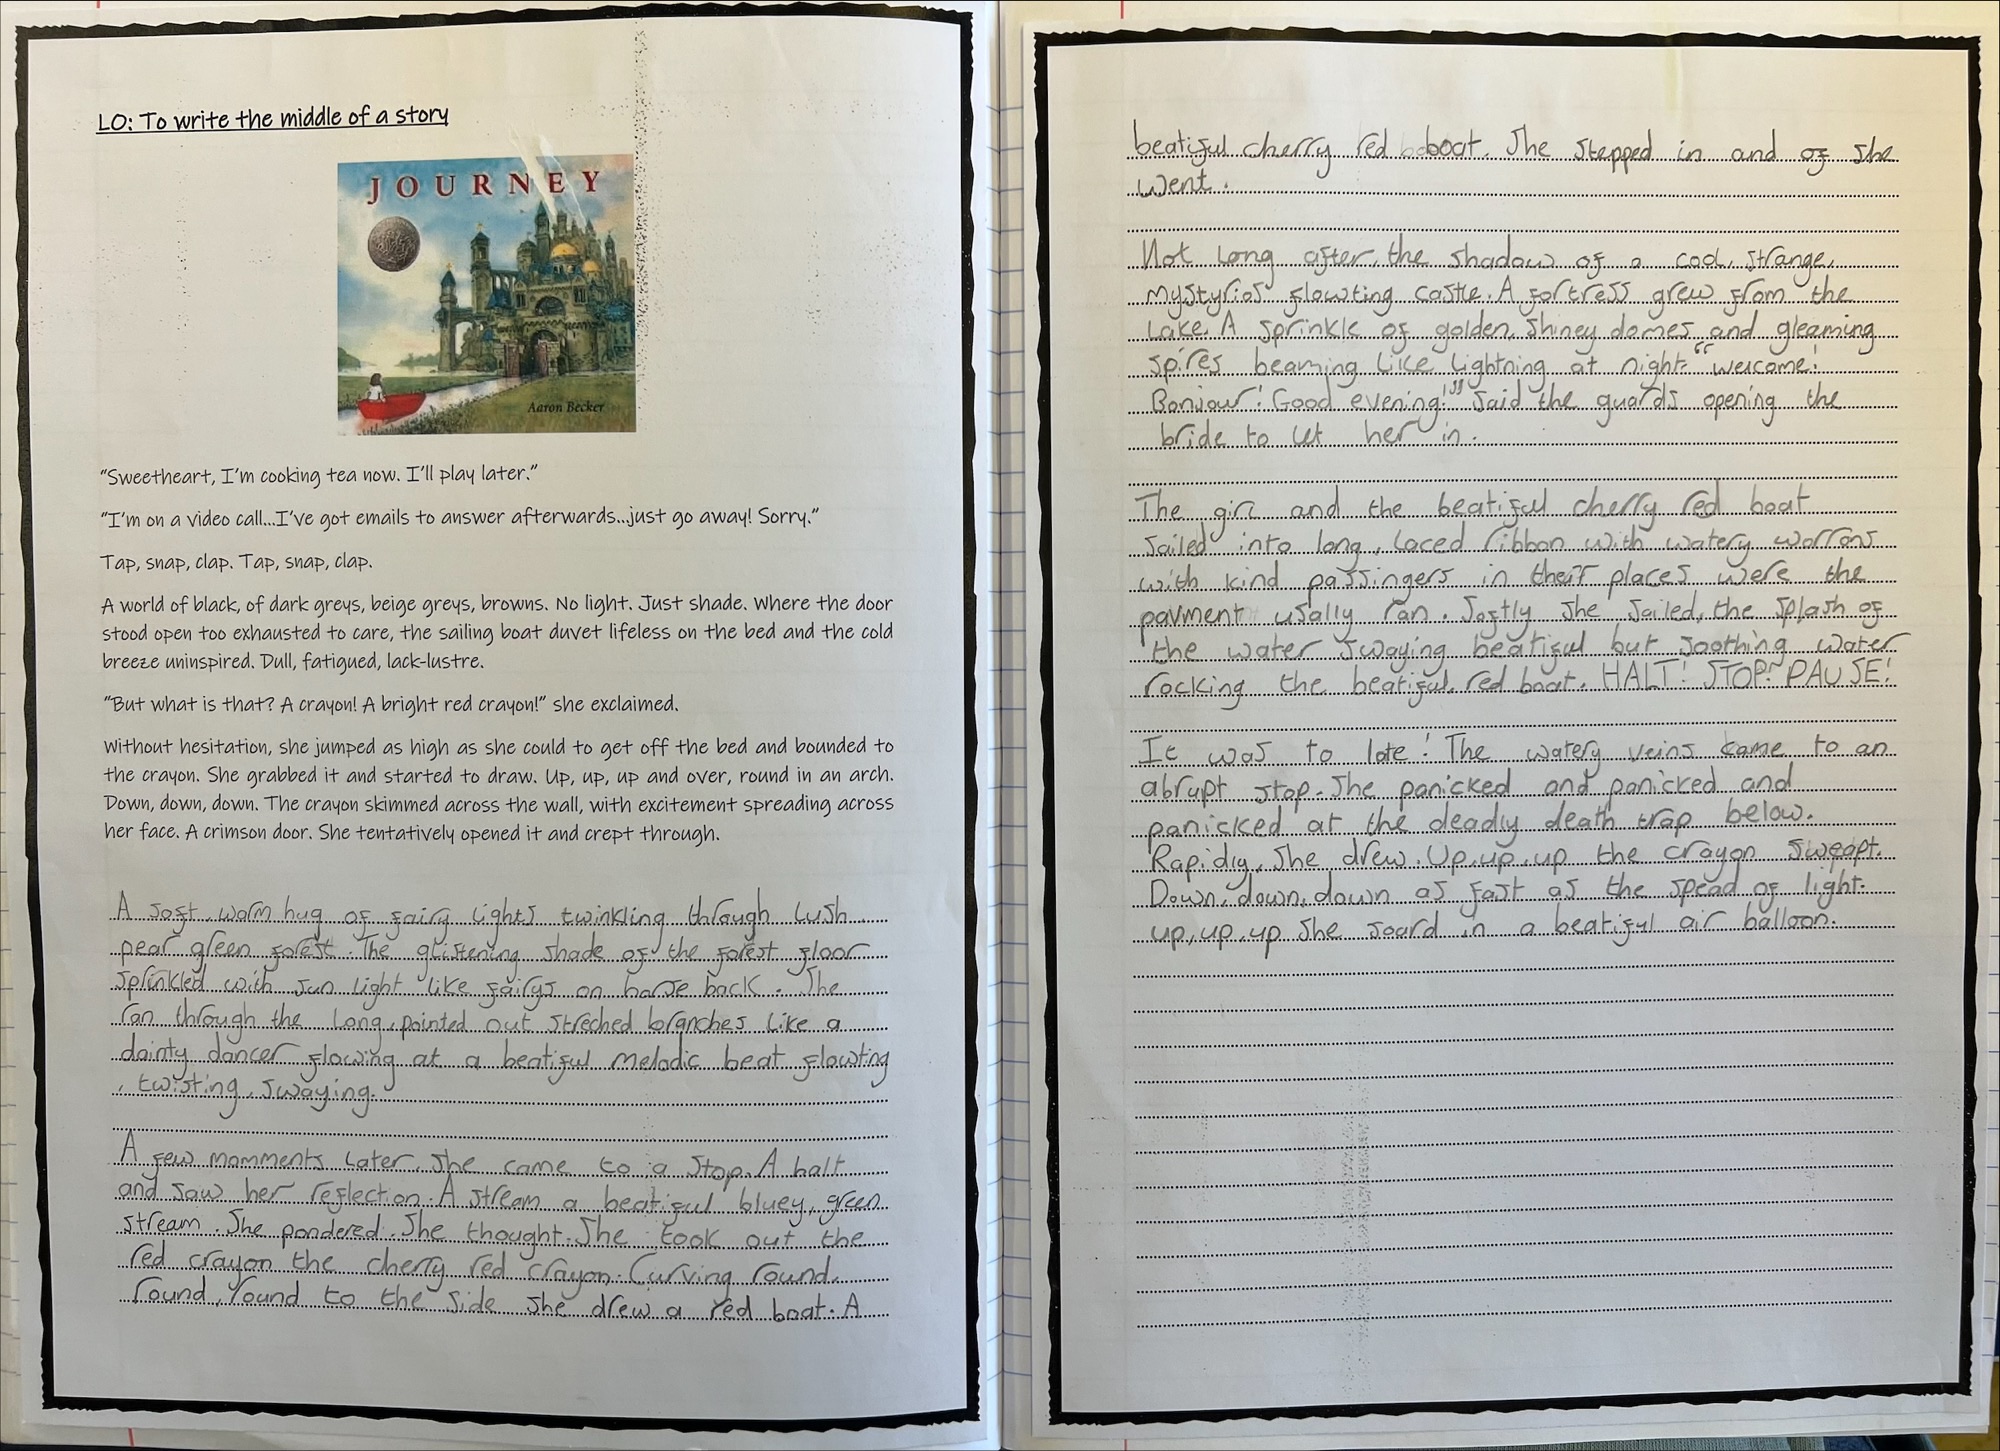 LO: To write the middle of a story
JOURNEY
Aaron Becker
“Sweetheart, I’m cooking tea now. I’ll play later.”
“I’m on a video call...I’ve got emails to answer afterwards...just go away! Sorry.”
Tap, snap, clap. Tap, snap, clap.
A world of black, of dark greys, beige greys, browns. No light. Just shade. Where the door
stood open too exhausted to care, the sailing boat duvet lifeless on the bed and the cold
breeze uninspired. Dull, fatigued, lack-lustre.
“But what is that? A crayon! A bright red crayon!” she exclaimed.
Without hesitation, she jumped as high as she could to get off the bed and bounded to
the crayon. She grabbed it and started to draw. Up, up, up and over, round in an arch.
Down, down, down. The crayon skimmed across the wall, with excitement spreading across
her face. A crimson door. She tentatively opened it and crept through.
A soft, warm hug of fairy lights twinkling through lush
pear green forest. The glistening shade of the forest floor
sprinkled with sun light like fairys on horse back. She
ran through the long, pointed out streched branches like a
dainty dancer flowing at a beatiful melodic beat flowting
, twisting, swaying.
A few momments later, she came to a stop. A halt
and saw her reflection. A stream a beatiful bluey, green
stream. She pondered. She thought. She took out the
red crayon the cherry red crayon. Curving round,
round, round to the side she drew a red boat. A
beatiful cherry red boat. She stepped in and of she
went.
Not long after, the shadow of a cool, strange,
mystyrios flowting castle. A fortress grew from the
lake. A sprinkle of golden, shiney domes and gleaming
spires beaming like lightning at night. “welcome!
Bonjour! Good evening!” said the guards opening the
bride to let her in.
The girl and the beatiful cherry red boat
sailed into long, laced ribbon with watery worrons
with kind passingers in their places were the
pavment usally ran. Softly she sailed, the splash of
the water swaying beatiful but soothing water
rocking the beatiful, red boat. HALT! STOP! PAUSE!
It was to late! The watery veins came to an
abrupt stop. She panicked and panicked and
panicked at the deadly death trap below.
Rapidly, she drew. Up, up, up the crayon sweapt.
Down, down, down as fast as the spead of light.
up, up, up she soard in a beatiful air balloon.